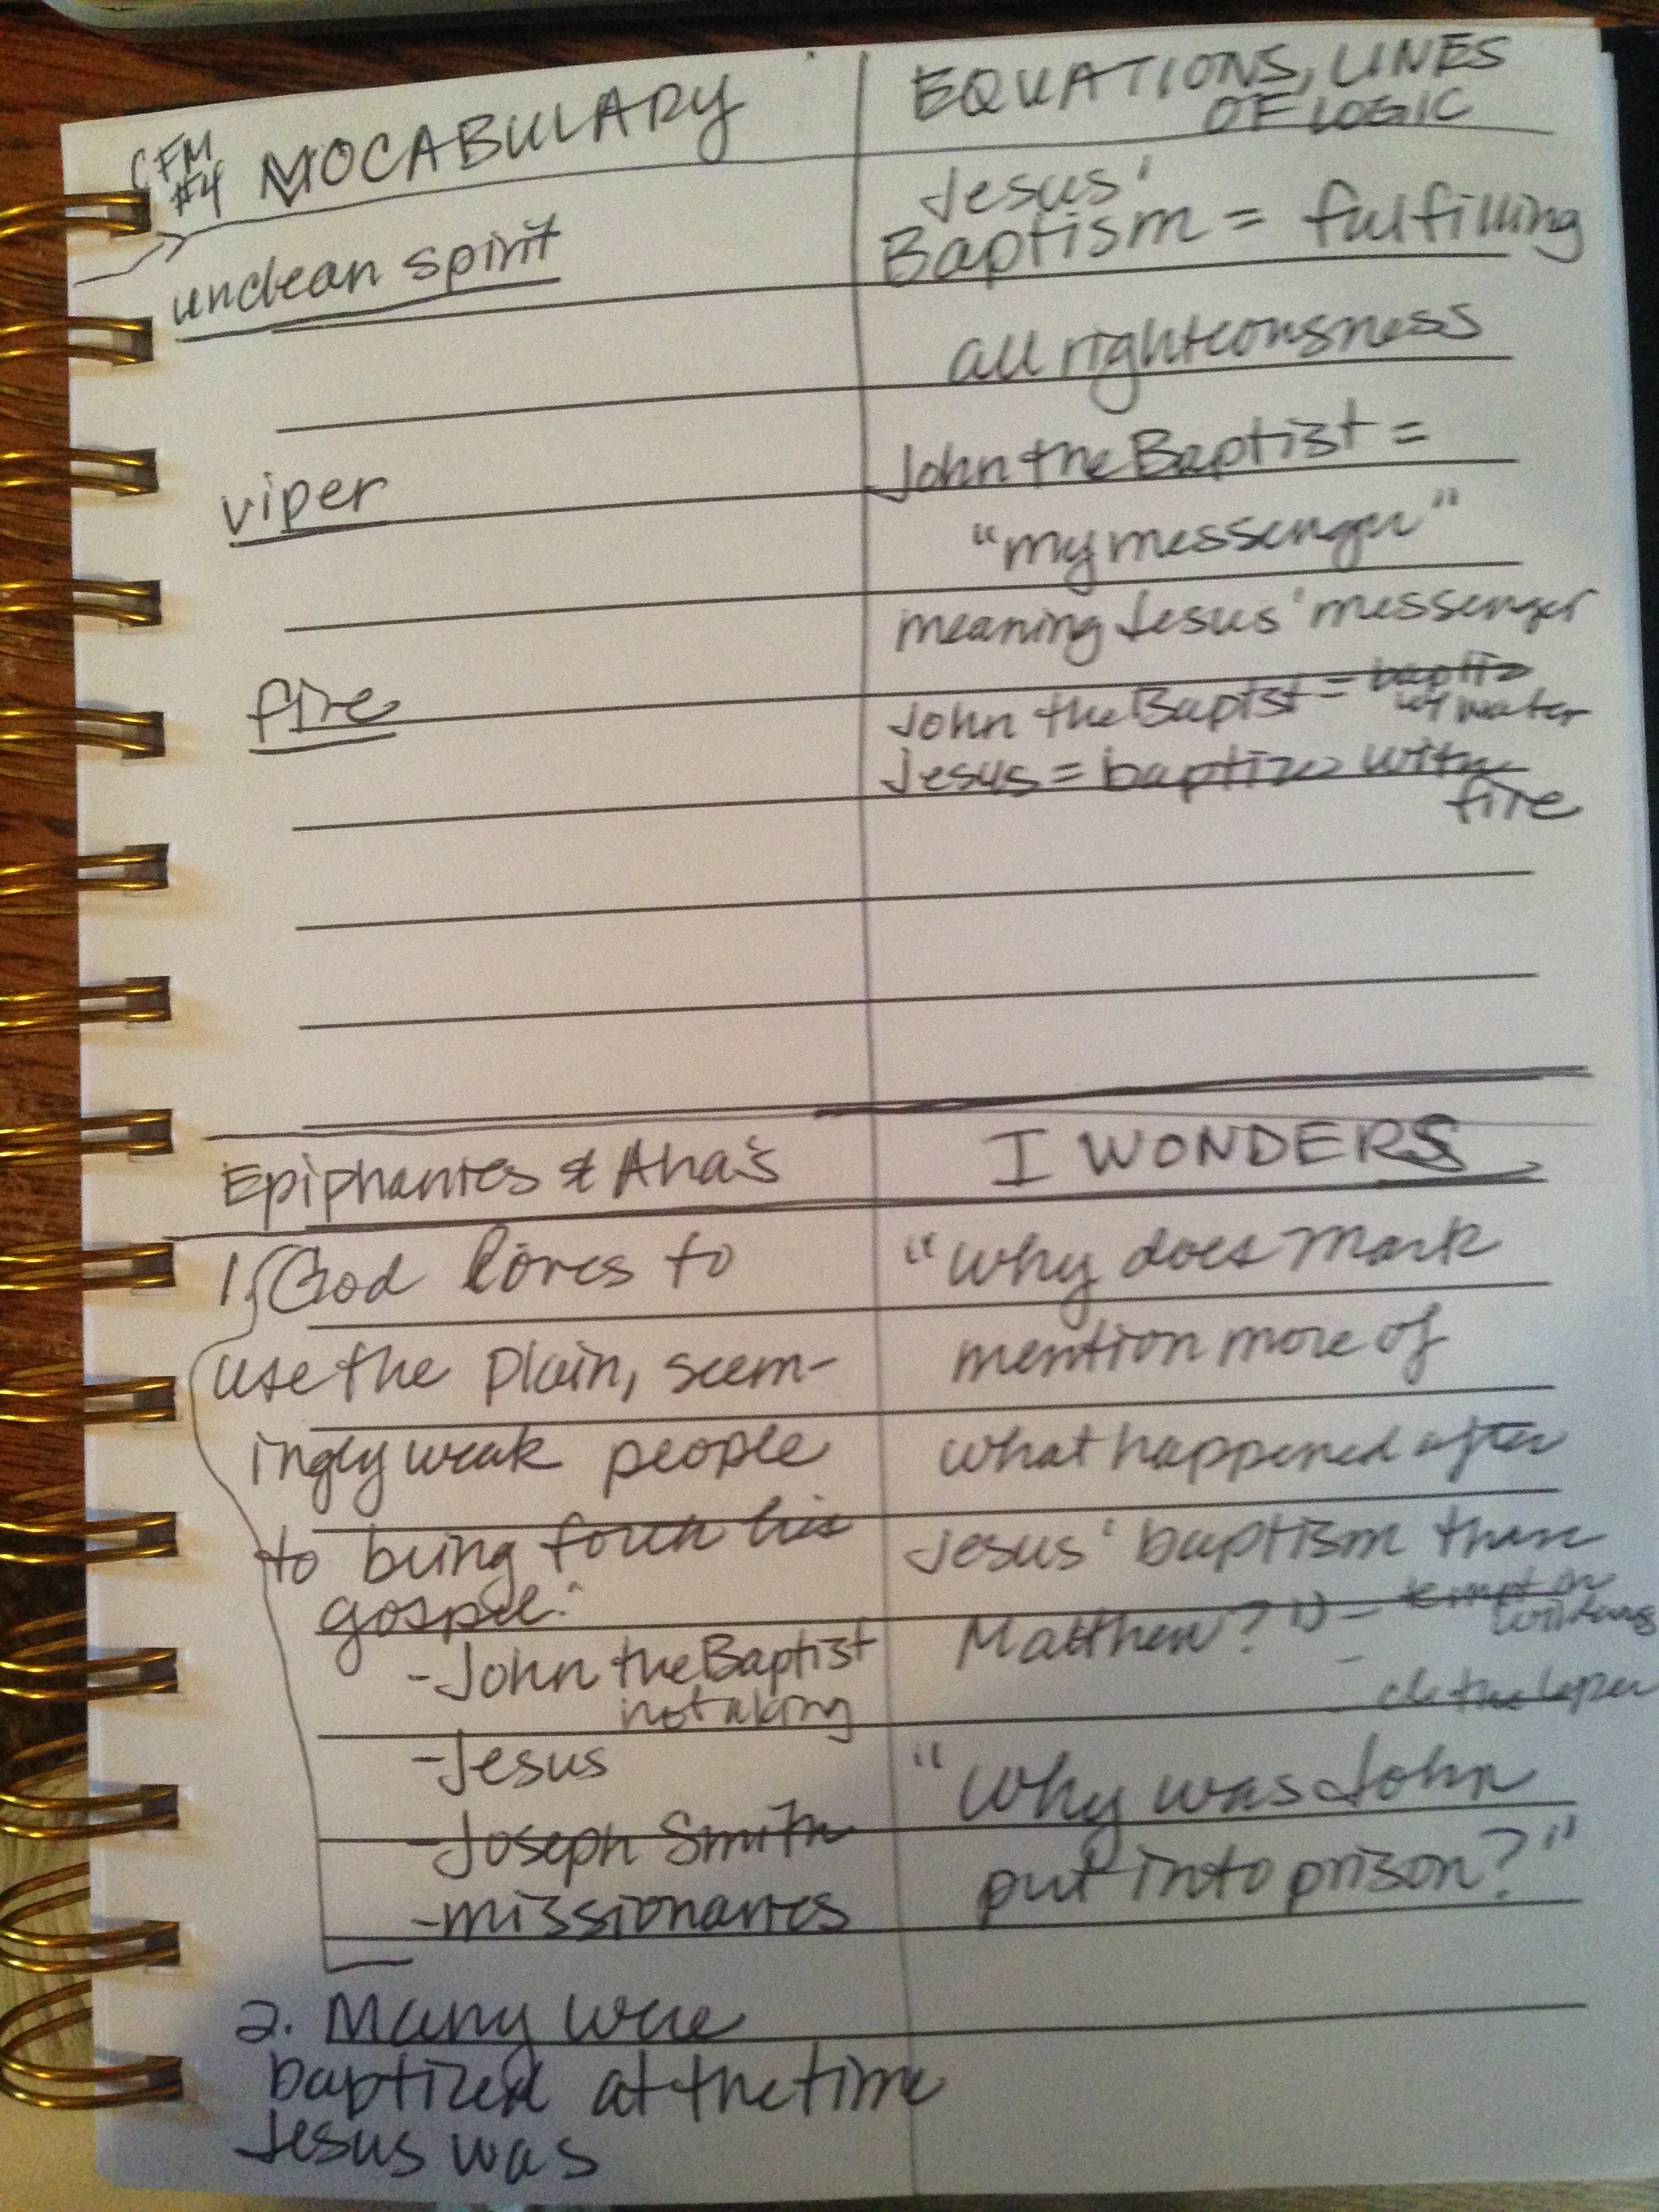 CFM
#4
VOCABULARY
unclean spirit
viper
fire
EQUATIONS, LINES
OF LOGIC
Jesus'
Baptism = fulfilling
all righteousness
John the Baptist =
"my messenger"
meaning Jesus' messenger
John the Baptist = baptiz
w/ water
Jesus = baptize with
fire
Epiphanies & Aha's
1. God loves to
use the plain, seem-
ingly weak people
to bring forth his
gospel."
- John the Baptist
- Jesus
- Joseph Smith
- missionaries
2. Many were
baptized at the time
Jesus was
I WONDERS
"Why does Mark
mention more of
what happened after
Jesus' baptism than
Matthew?" -
the leper
"Why was John
put into prison?"